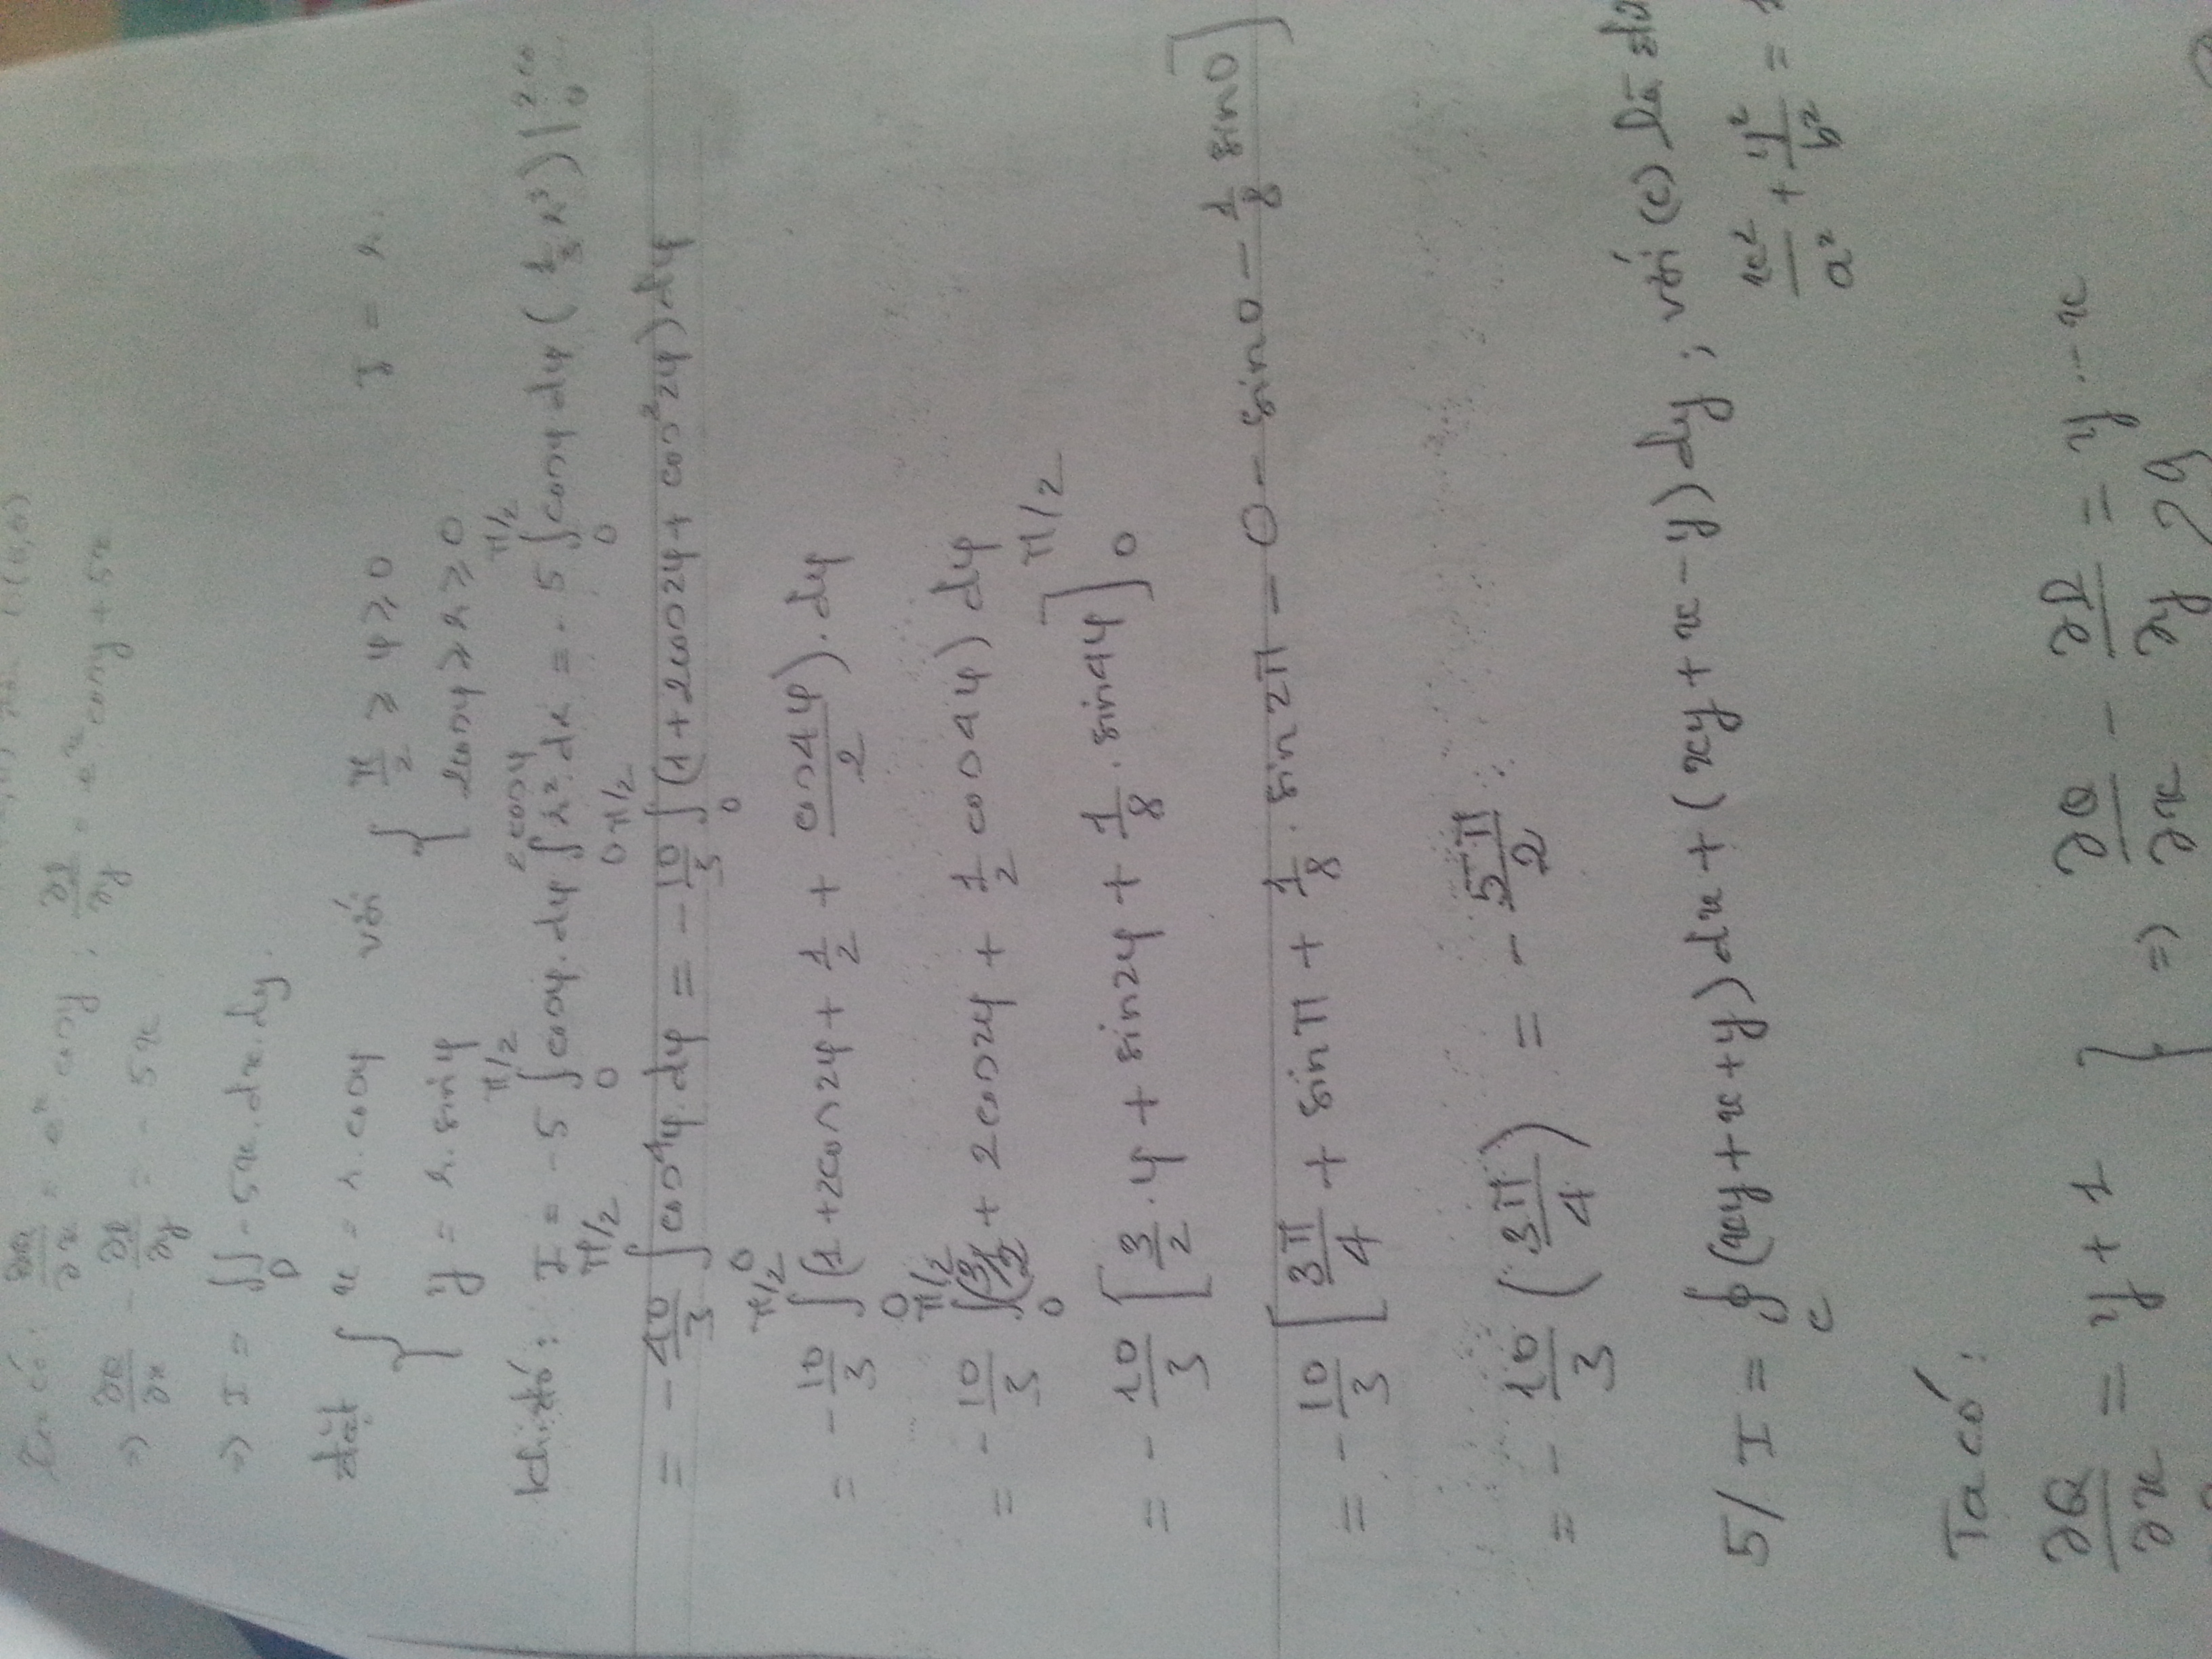 O(0,0)
Ta có: ∂Q/∂x = e^x cosy ; ∂P/∂y = e^x cosy + 5x
=> ∂Q/∂x - ∂P/∂y = - 5x
=> I = ∬_D - 5x.dx.dy.
đặt { x = r.cosφ ; y = r.sinφ với { π/2 ≥ φ ≥ 0 ; 2cosφ ≥ r ≥ 0 J = r.
Khi đó: I = -5 ∫_0^{π/2} cosφ.dφ ∫_0^{2cosφ} r².dr = - 5 ∫_0^{π/2} cosφ dφ (1/3 r³)|_0^{2co
= - 40/3 ∫_0^{π/2} cos⁴φ.dφ = - 10/3 ∫_0^{π/2} (1+2cos2φ + cos²2φ)dφ
= - 10/3 ∫_0^{π/2} (1+2cos2φ + 1/2 + cos4φ/2).dφ
= - 10/3 ∫_0^{π/2} (3/2 + 2cos2φ + 1/2 cos4φ) dφ
= - 10/3 [3/2.φ + sin2φ + 1/8.sin4φ]_0^{π/2}
= - 10/3 [3π/4 + sinπ + 1/8.sin2π - 0 - sin0 - 1/8 sin0]
= - 10/3 (3π/4) = - 5π/2.
5/ I = ∮_C (xy+x+y)dx + (xy+x-y)dy, với (c) là đư
x²/a² + y²/b² = 1
Ta có:
∂Q/∂x = y + 1 } => ∂Q/∂x - ∂P/∂y = y - x
29